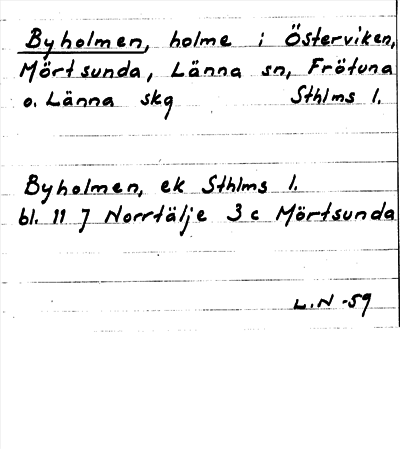 Byholmen, holme i Österviken,
Mörtsunda, Länna sn, Frötuna
o. Länna skg Sthlms l.
Byholmen, ek Sthlms l.
bl. 11 J Norrtälje 3 c Mörtsunda
L.N -59